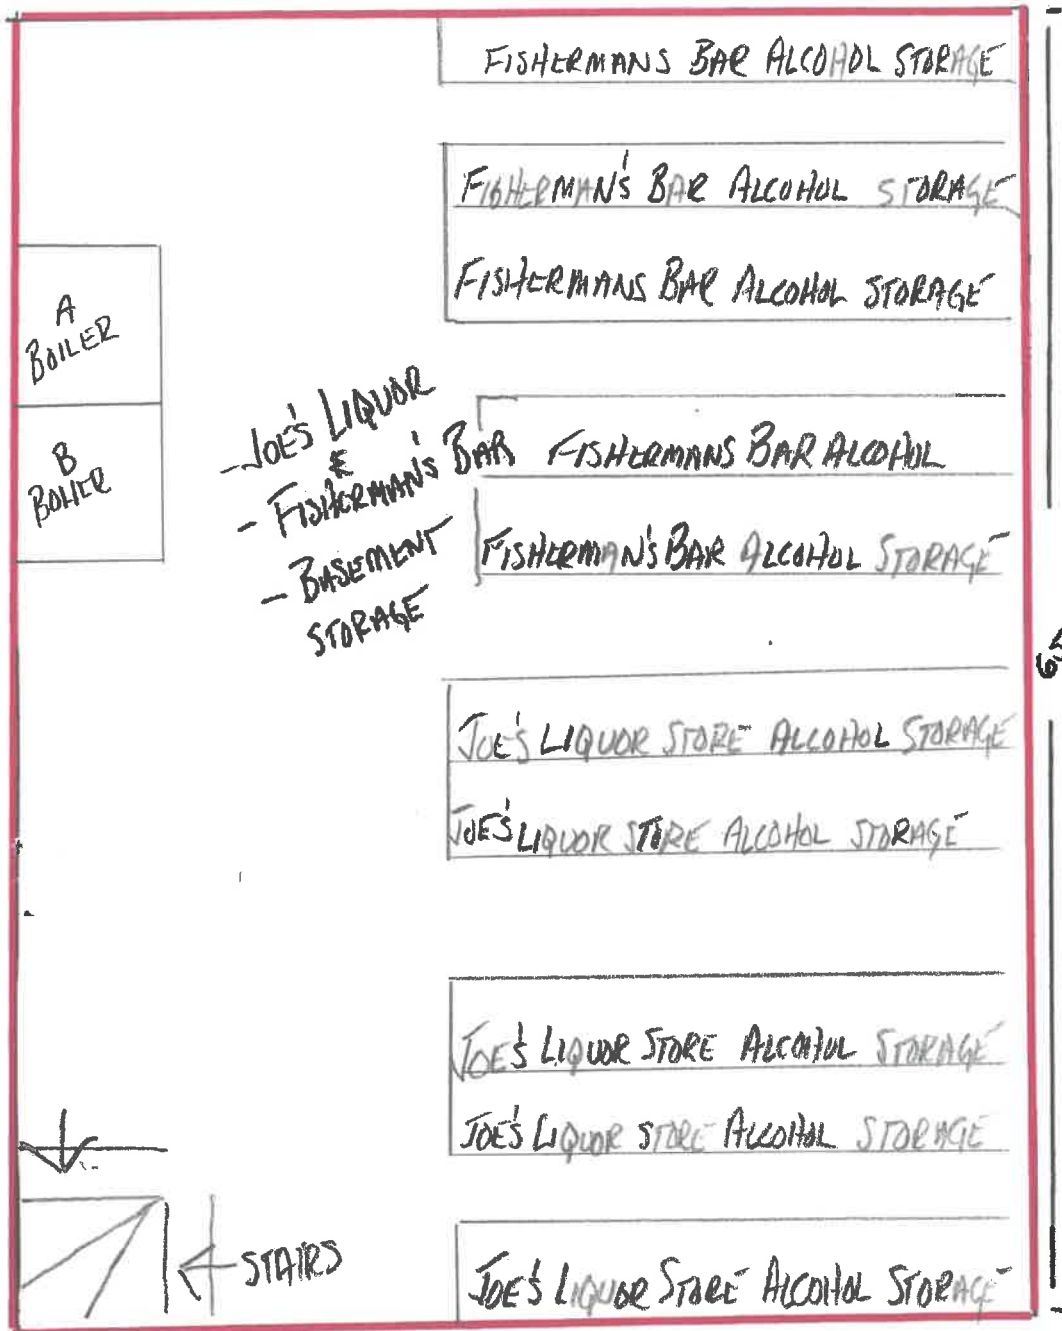 FISHERMANS BAR ALCOHOL STORAGE
FISHERMAN'S BAR ALCOHOL STORAGE
FISHERMANS BAR ALCOHOL STORAGE
A
BOILER
B
BOILER
- JOE'S LIQUOR
&
- FISHERMAN'S BAR
- BASEMENT
STORAGE
FISHERMANS BAR ALCOHOL
FISHERMAN'S BAR ALCOHOL STORAGE
JOE'S LIQUOR STORE ALCOHOL STORAGE
JOE'S LIQUOR STORE ALCOHOL STORAGE
JOE'S LIQUOR STORE ALCOHOL STORAGE
JOE'S LIQUOR STORE ALCOHOL STORAGE
STAIRS
JOE'S LIQUOR STORE ALCOHOL STORAGE